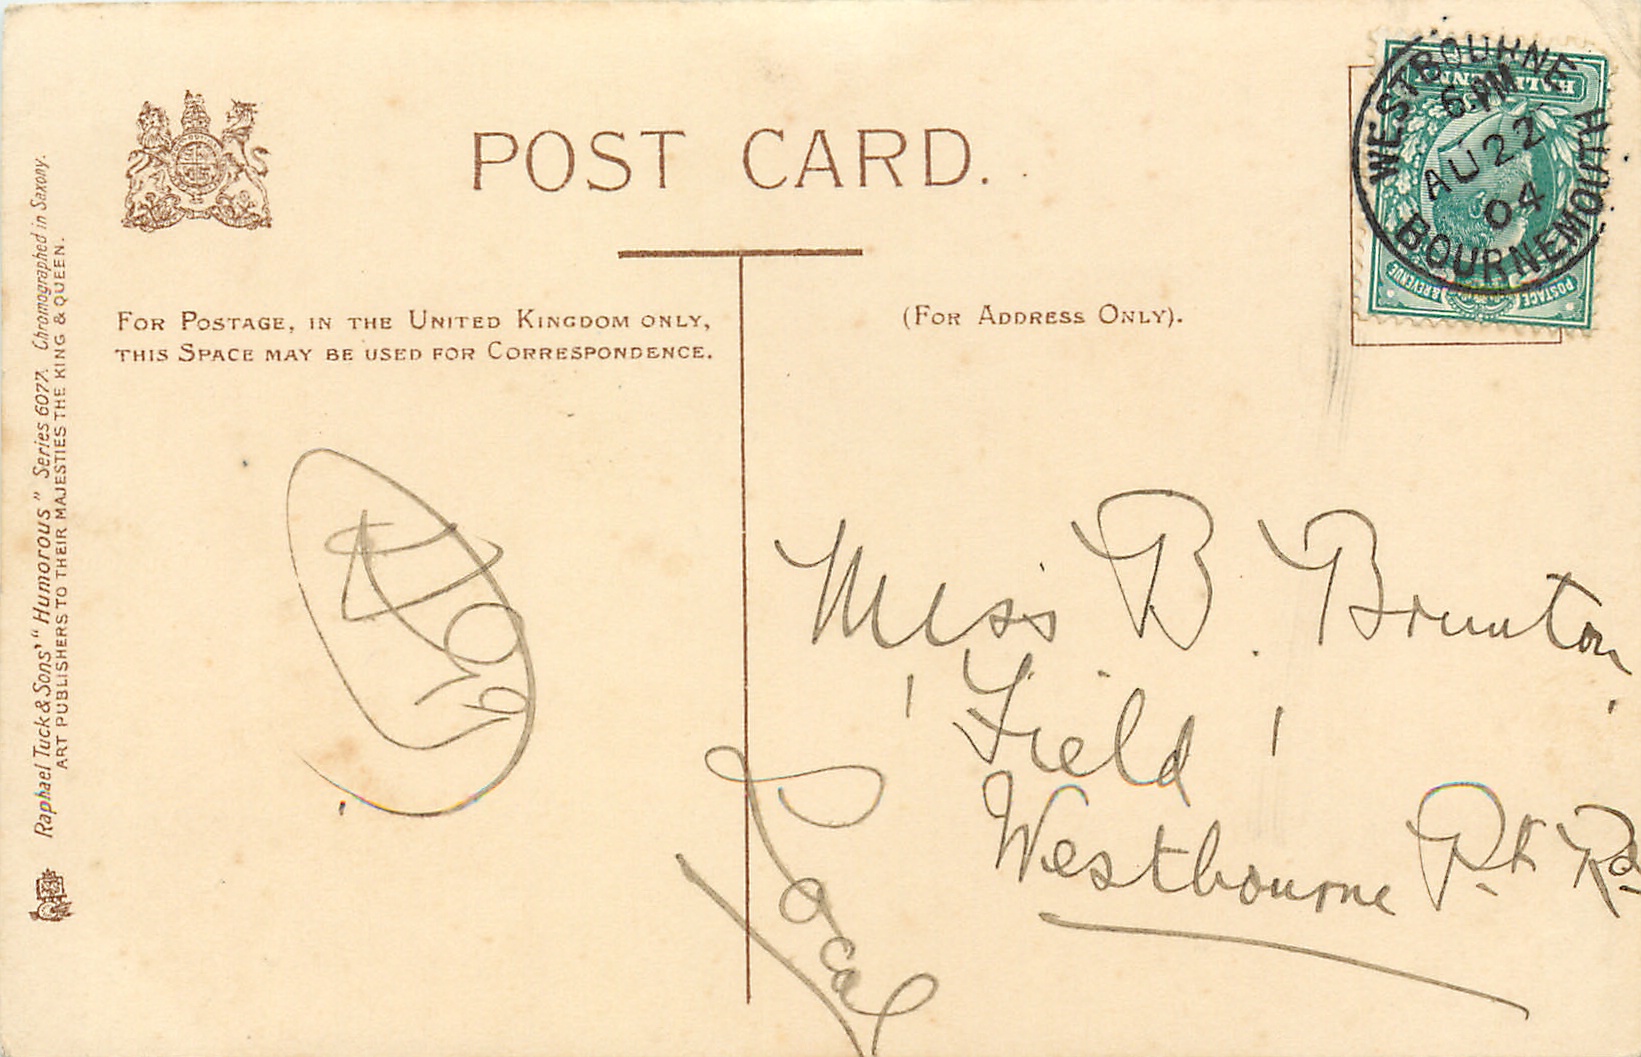 POST CARD.
FOR POSTAGE, IN THE UNITED KINGDOM ONLY,
THIS SPACE MAY BE USED FOR CORRESPONDENCE.
(FOR ADDRESS ONLY).
WESTBOURNE
6 PM
AU 22
04
BOURNEMOUTH
POSTAGE & REVENUE
Miss B. Brunton
'Field'
Westbourne Pk Rd
Local
Raphael Tuck & Sons' "Humorous" Series 6077. Chromographed in Saxony.
ART PUBLISHERS TO THEIR MAJESTIES THE KING & QUEEN.